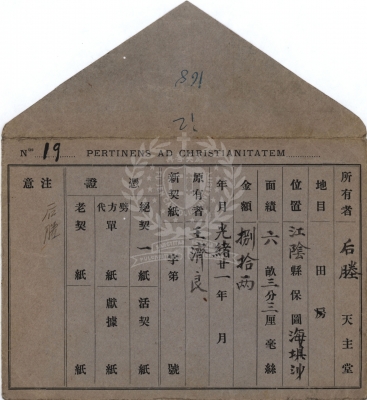 168
12
Nº 19 PERTINENS AD CHRISTIANITATEM
所有者 后塍 天主堂
地目 田 房
位置 江陰縣 保 圖 海垻沙
面績 六 畝三分三厘 毫 絲
金額 捌拾兩
年月 光緒廿一年 月
原有者 王濟良
新契紙 字第 號
證 憑
絕契 一 紙 活契 紙
代方單 紙 獻據 紙
老契 紙 紙
注意
后塍